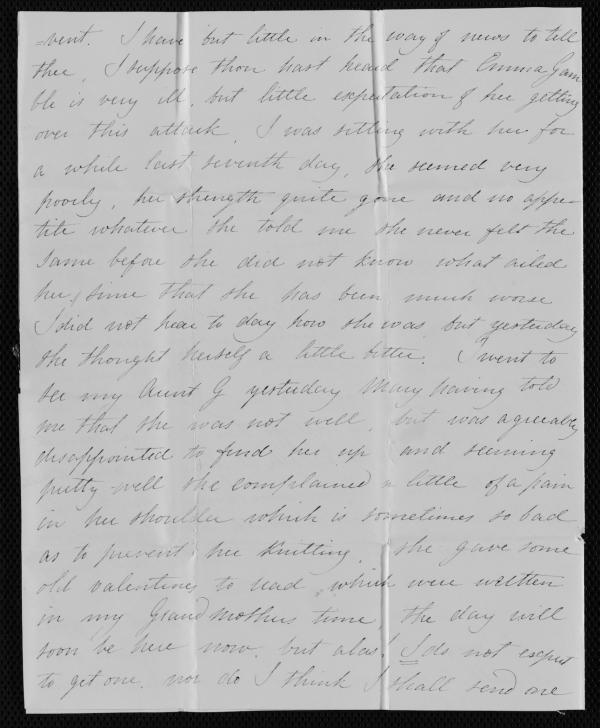 =vent. I have but little in the way of news to tell
thee I suppose thou hast heard that Emma Gam
ble is very ill, but little expectation of her getting
over this attack, I was sitting with her for
a while last seventh day, she seemed very
poorly, her strength quite gone and no appe-
tite whatever she told me she never felt the
same before she did not know what ailed
her, since that she has been much worse
I did not hear to day how she was but yesterday
she thought herself a little better. I went to
see my Aunt G yesterday Mary having told
me that she was not well, but was agreeably
disappointed to find her up and seeming
pretty well she complained a little of a pain
in her shoulder which is sometimes so bad
as to prevent her knitting, she gave some
old valentines to read, which were written
in my Grandmothers time, the day will
soon be here now. but alas! I do not expect
to get one. nor do I think I shall send one